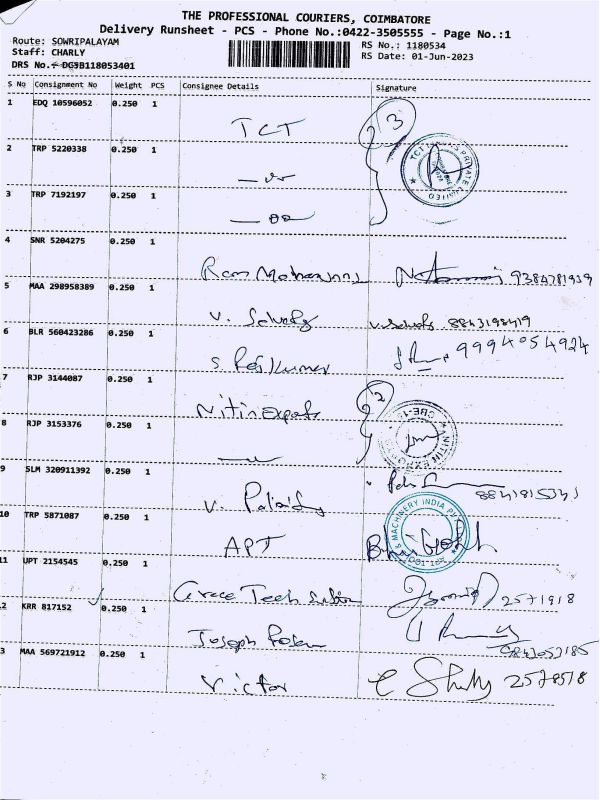 THE PROFESSIONAL COURIERS, COIMBATORE
Delivery Runsheet - PCS - Phone No.:0422-3505555 - Page No.:1
Route: SOWRIPALAYAM RS No.: 1180534
Staff: CHARLY RS Date: 01-Jun-2023
DRS No.: DG3B118053401
S No Consignment No Weight PCS Consignee Details Signature
1 EDQ 10596052 0.250 1
TCT 3
2 TRP 5220338 0.250 1
3 TRP 7192197 0.250 1
4 SNR 5204275 0.250 1
9384781939
5 MAA 298958389 0.250 1
V. 8843198419
6 BLR 560423286 0.250 1
S. Rajkumar 9994054924
7 RJP 3144087 0.250 1
Nitin Exports 2
8 RJP 3153376 0.250 1
9 SLM 320911392 0.250 1
V.
10 TRP 5871087 0.250 1
APT
MACHINERY INDIA
11 UPT 2154545 0.250 1
Grace Tech 2571918
2 KRR 817152 0.250 1
Joseph
3 MAA 569721912 0.250 1
Victor 2578518